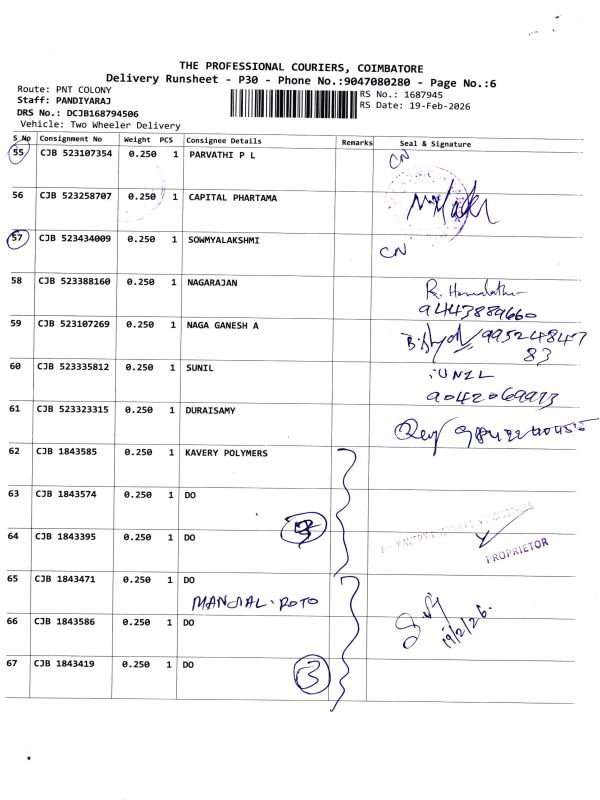 THE PROFESSIONAL COURIERS, COIMBATORE
Delivery Runsheet - P30 - Phone No.:9047080280 - Page No.:6
Route: PNT COLONY
Staff: PANDIYARAJ
DRS No.: DCJB168794506
Vehicle: Two Wheeler Delivery
RS No.: 1687945
RS Date: 19-Feb-2026
S No Consignment No Weight PCS Consignee Details Remarks Seal & Signature
55 CJB 523107354 0.250 1 PARVATHI P L CN
56 CJB 523258707 0.250 1 CAPITAL PHARTAMA
57 CJB 523434009 0.250 1 SOWMYALAKSHMI CN
58 CJB 523388160 0.250 1 NAGARAJAN
9443889660
59 CJB 523107269 0.250 1 NAGA GANESH A 99524847
83
60 CJB 523335812 0.250 1 SUNIL
9042069973
61 CJB 523323315 0.250 1 DURAISAMY
62 CJB 1843585 0.250 1 KAVERY POLYMERS
63 CJB 1843574 0.250 1 DO
64 CJB 1843395 0.250 1 DO
PROPRIETOR
65 CJB 1843471 0.250 1 DO
66 CJB 1843586 0.250 1 DO
19/2/26.
67 CJB 1843419 0.250 1 DO 3